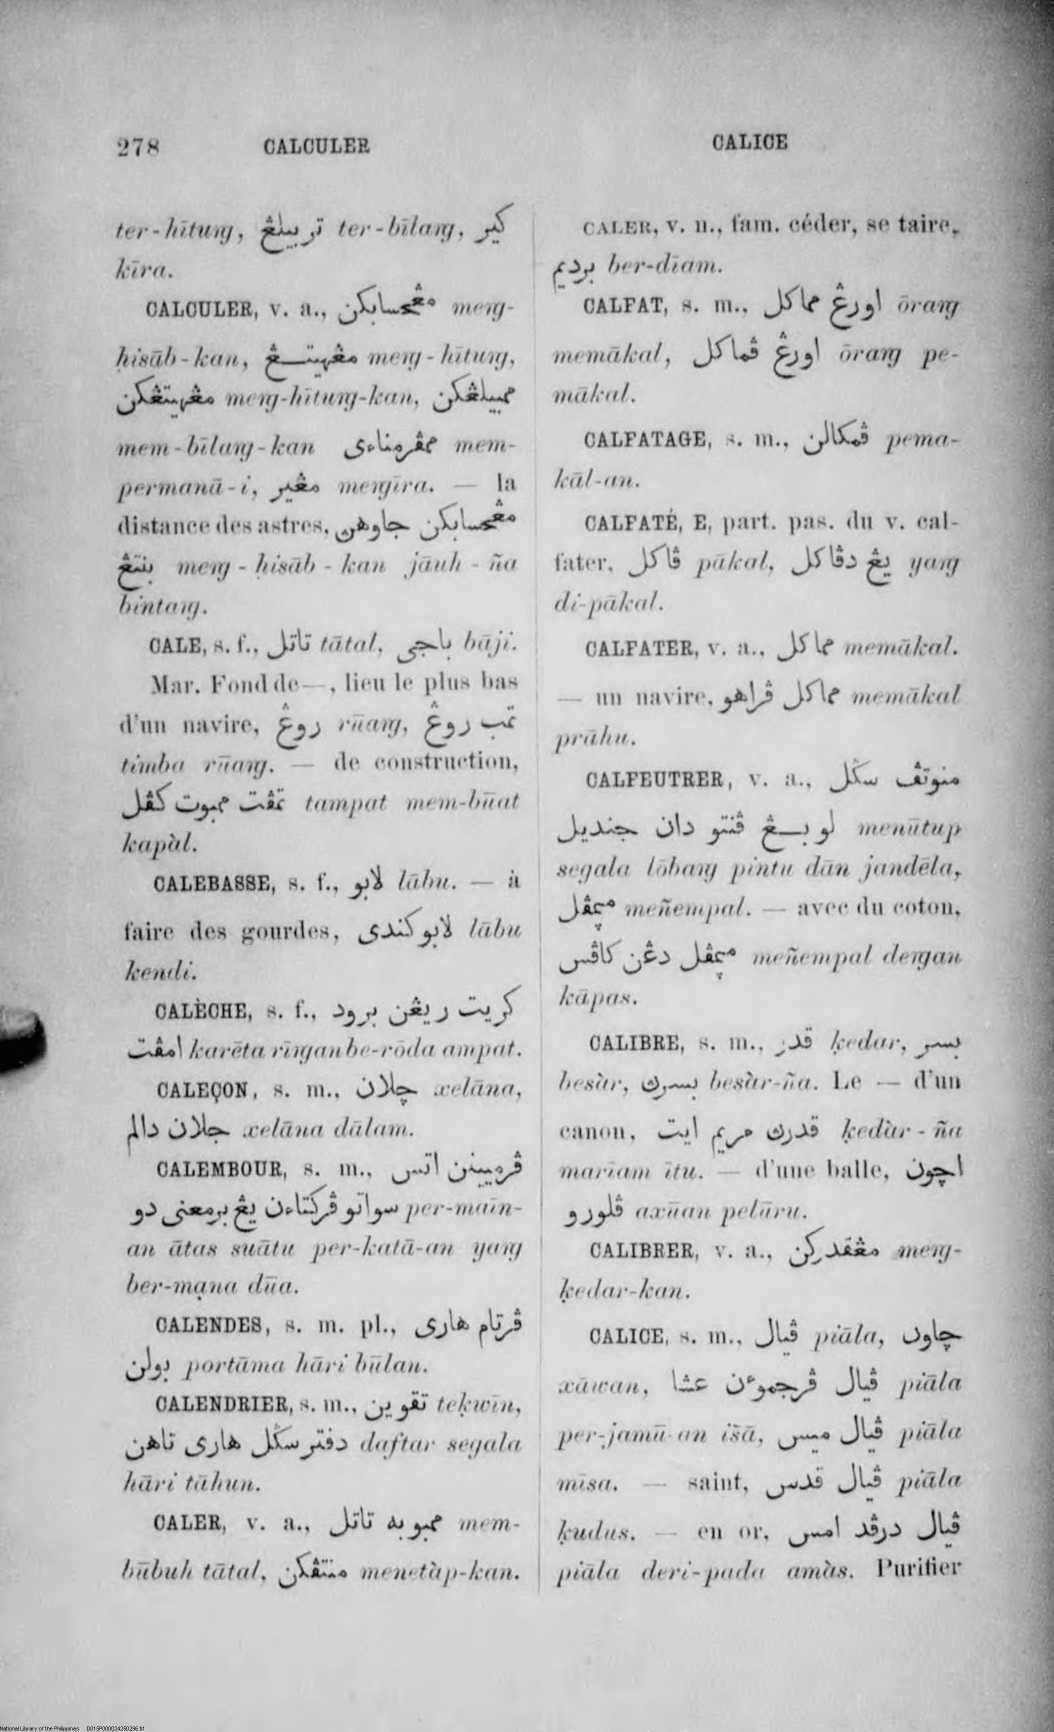 278 CALCULER CALICE
ter-hītuṅg, تربيلڠ ter-bīlaṅg, كير
kīra.
CALCULER, v. a., مڠحسابكن meṅg-
ḥisāb-kan, مڠهيتڠ meṅg-hītuṅg,
مڠهيتڠكن meṅg-hītuṅg-kan, ممبيلڠكن
mem-bīlaṅg-kan ممڤرمناءى mem-
permanā-i, مڠير meṅgīra. — la
distance des astres, مڠحسابكن جاوهن
بنتڠ meṅg-ḥisāb-kan jāuh-ña
bintaṅg.
CALE, s. f., تاتل tātal, باجى bāji.
Mar. Fond de —, lieu le plus bas
d'un navire, روڠ rūaṅg, تمب روڠ
timba rūaṅg. — de construction,
تمڤت ممبوت كڤل tampat mem-būat
kapàl.
CALEBASSE, s. f., لابو lābu. — à
faire des gourdes, لابو كندى lābu
kendi.
CALÈCHE, s. f., كريت ريڠن برود
امڤت karēta rīṅgan be-rōda ampat.
CALEÇON, s. m., چلان xelāna,
چلان دالم xelāna dālam.
CALEMBOUR, s. m., ڤرمييننن اتس
سواتو ڤركتاءن يڠ برمعنى دو per-maīn-
an ātas suātu per-katā-an yaṅg
ber-mạna dūa.
CALENDES, s. m. pl., ڤرتام هارى
بولن portāma hāri būlan.
CALENDRIER, s. m., تقوين teḳwīn,
دفتر سڬل هارى تاهن daftar segala
hāri tāhun.
CALER, v. a., ممبوبه تاتل mem-
būbuh tātal, منتڤكن menetàp-kan.
CALER, v. n., fam. céder, se taire,
برديم ber-dīam.
CALFAT, s. m., اورڠ مماكل ōraṅg
memākal, اورڠ ڤماكل ōraṅg pe-
mākal.
CALFATAGE, s. m., ڤمكالن pema-
kāl-an.
CALFATÉ, E, part. pas. du v. cal-
fater, ڤاكل pākal, يڠ دڤاكل yaṅg
di-pākal.
CALFATER, v. a., مماكل memākal.
— un navire, مماكل ڤراهو memākal
prāhu.
CALFEUTRER, v. a., منوتڤ سڬل
لوبڠ ڤنتو دان جنديل menūtup
segala lōbaṅg pintu dān jandēla,
مڽمڤل meñempal. — avec du coton,
مڽمڤل دڠن كاڤس meñempal deṅgan
kāpas.
CALIBRE, s. m., قدر ḳedar, بسر
besàr, بسرڽ besàr-ña. Le — d'un
canon, قدرڽ مريم ايت ḳedàr-ña
marīam ītu. — d'une balle, اچون
ڤلورو axūan pelūru.
CALIBRER, v. a., مڠقدركن meṅg-
ḳedar-kan.
CALICE, s. m., ڤيال piāla, چاون
xāwan, ڤيال ڤرجموءن عشا piāla
per-jamū-an išā, ڤيال ميس piāla
mīsa. — saint, ڤيال قدس piāla
ḳudus. — en or, ڤيال درڤد امس
piāla deri-pada amàs. Purifier
National Library of the Philippines